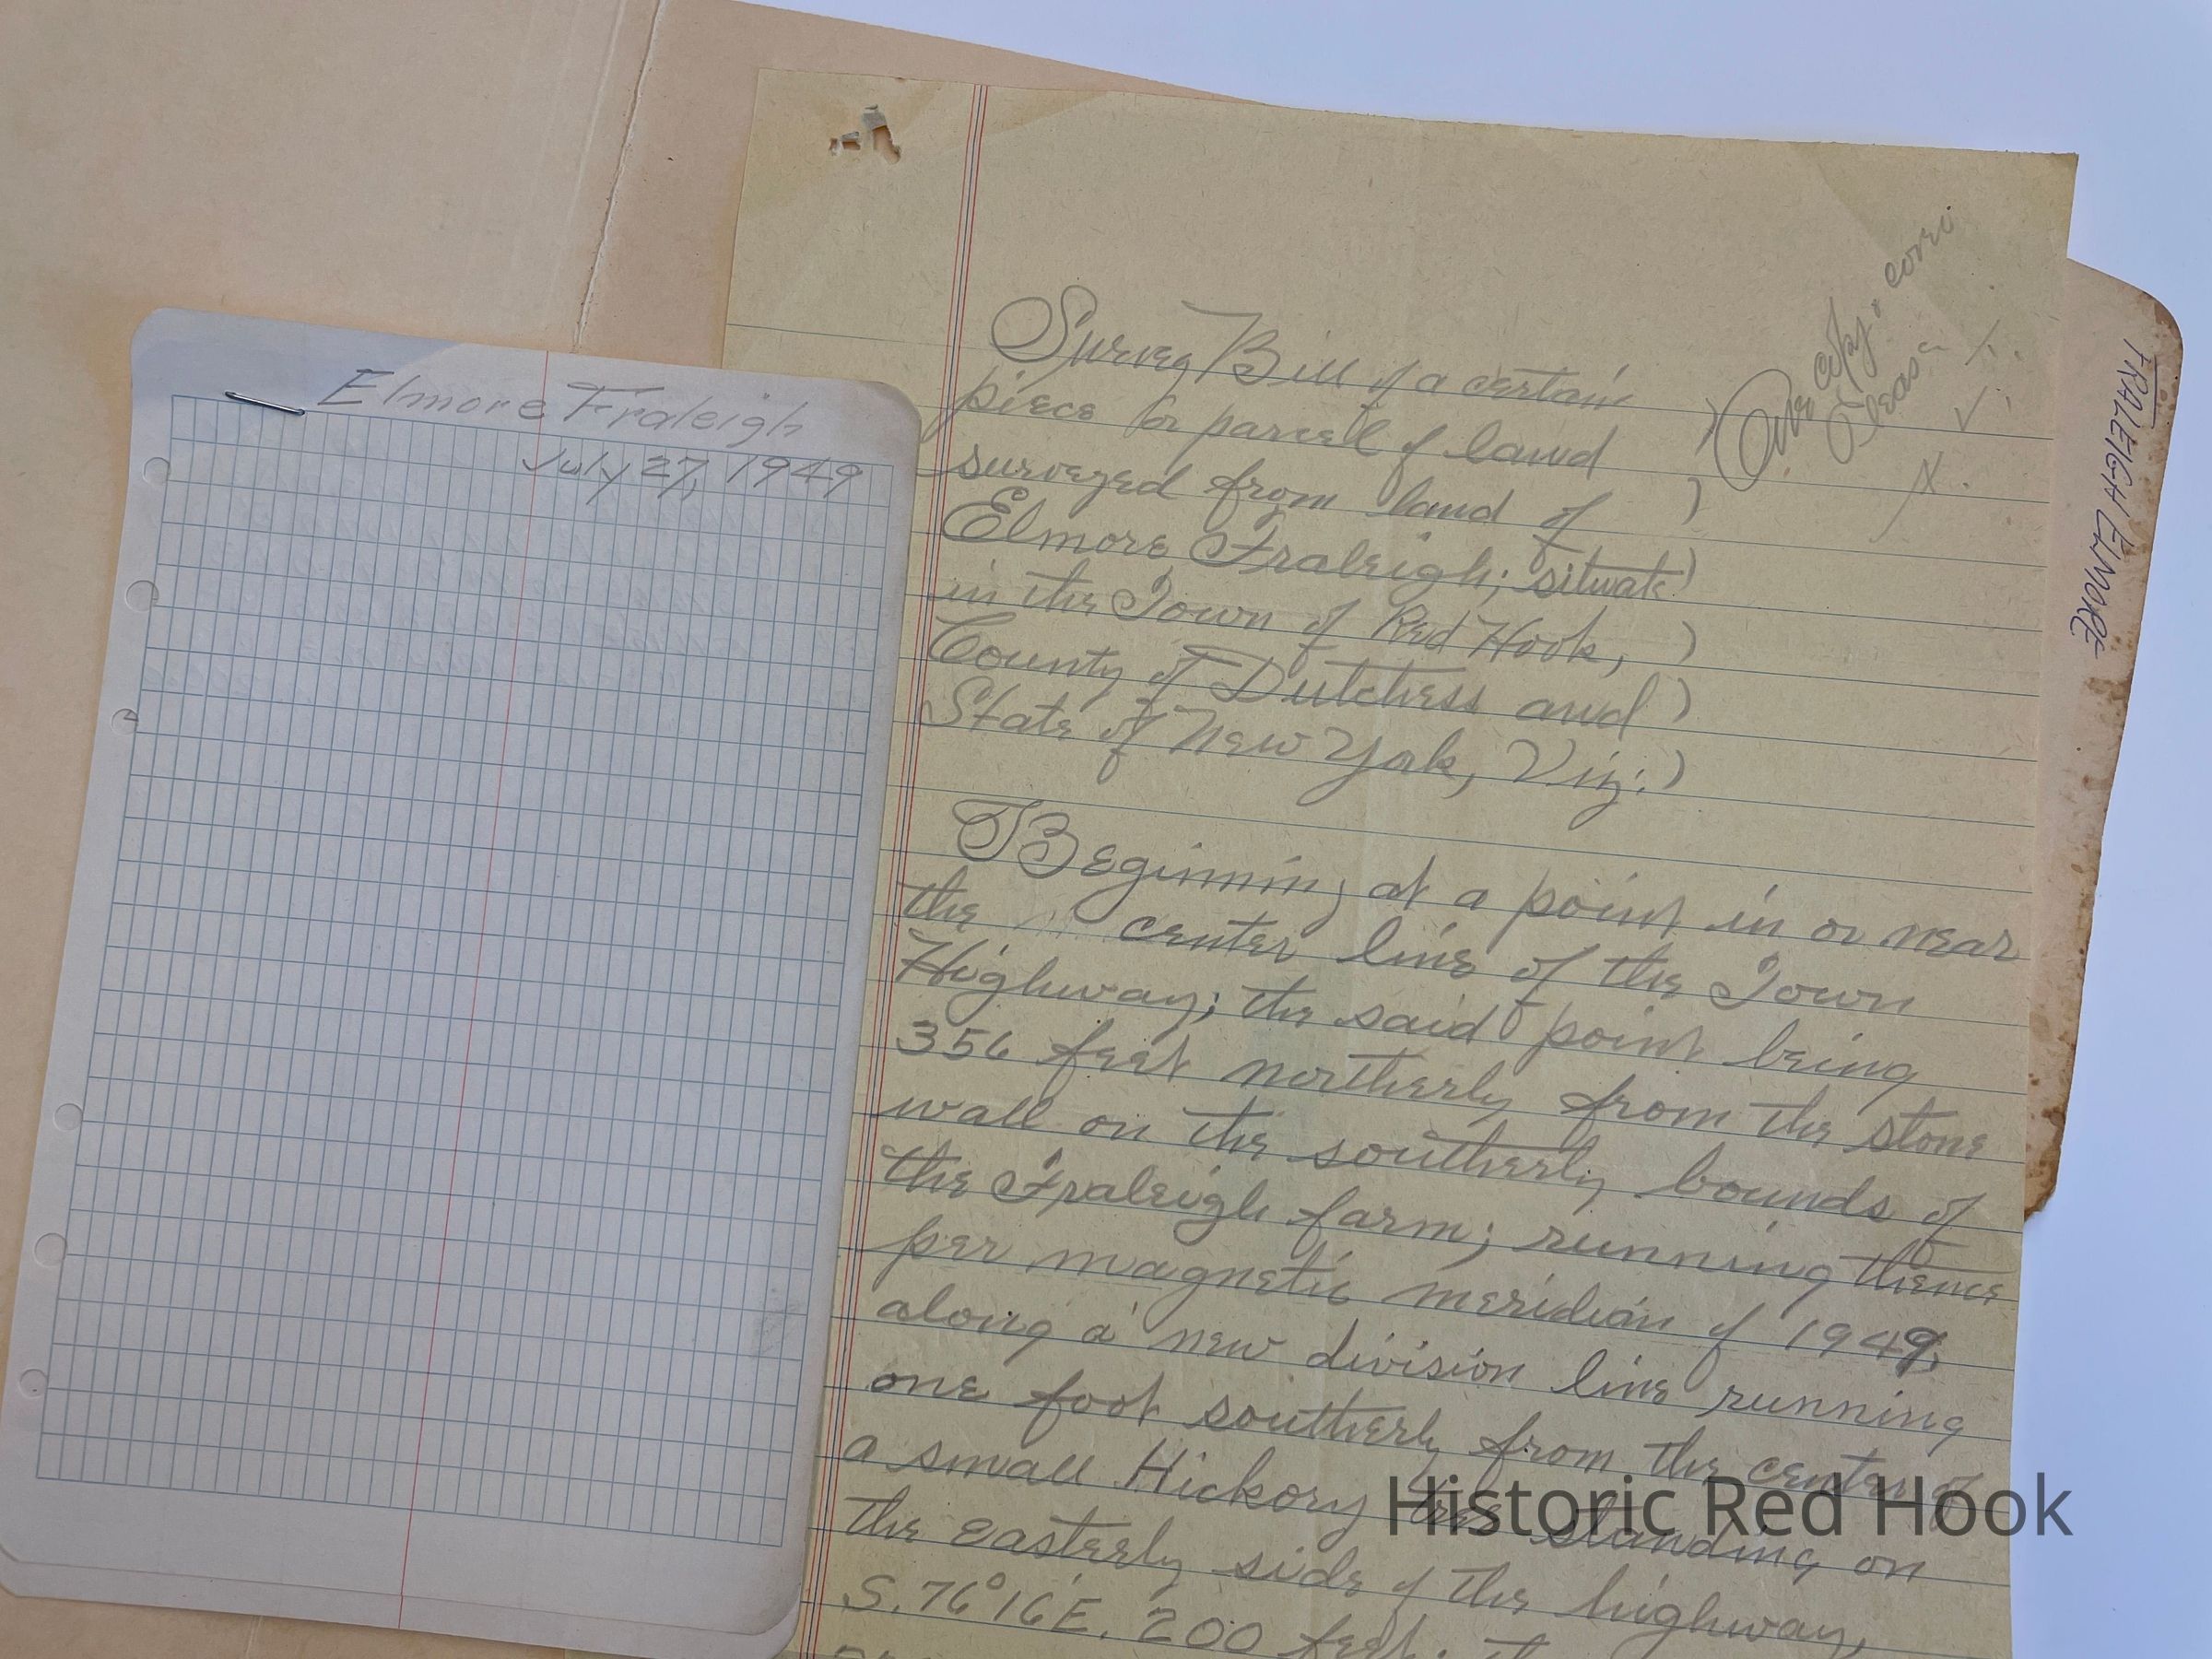 Elmore Fraleigh
July 27, 1949
Survey Bill of a certain )
piece or parcel of land
surveyed from land of )
Elmore Fraleigh; situate )
in the Town of Red Hook, )
County of Dutchess and )
State of New York, Viz: )
One copy
Please
Beginning at a point in or near
the center line of the Town
Highway; the said point being
356 feet northerly from the stone
wall on the southerly bounds of
the Fraleigh farm; running thence
per magnetic meridian of 1949,
along a new division line running
one foot southerly from the center of
a small Hickory tree standing on
the easterly side of the highway,
S. 76° 16' E. 200 feet;
FRALEIGH ELMORE
Historic Red Hook